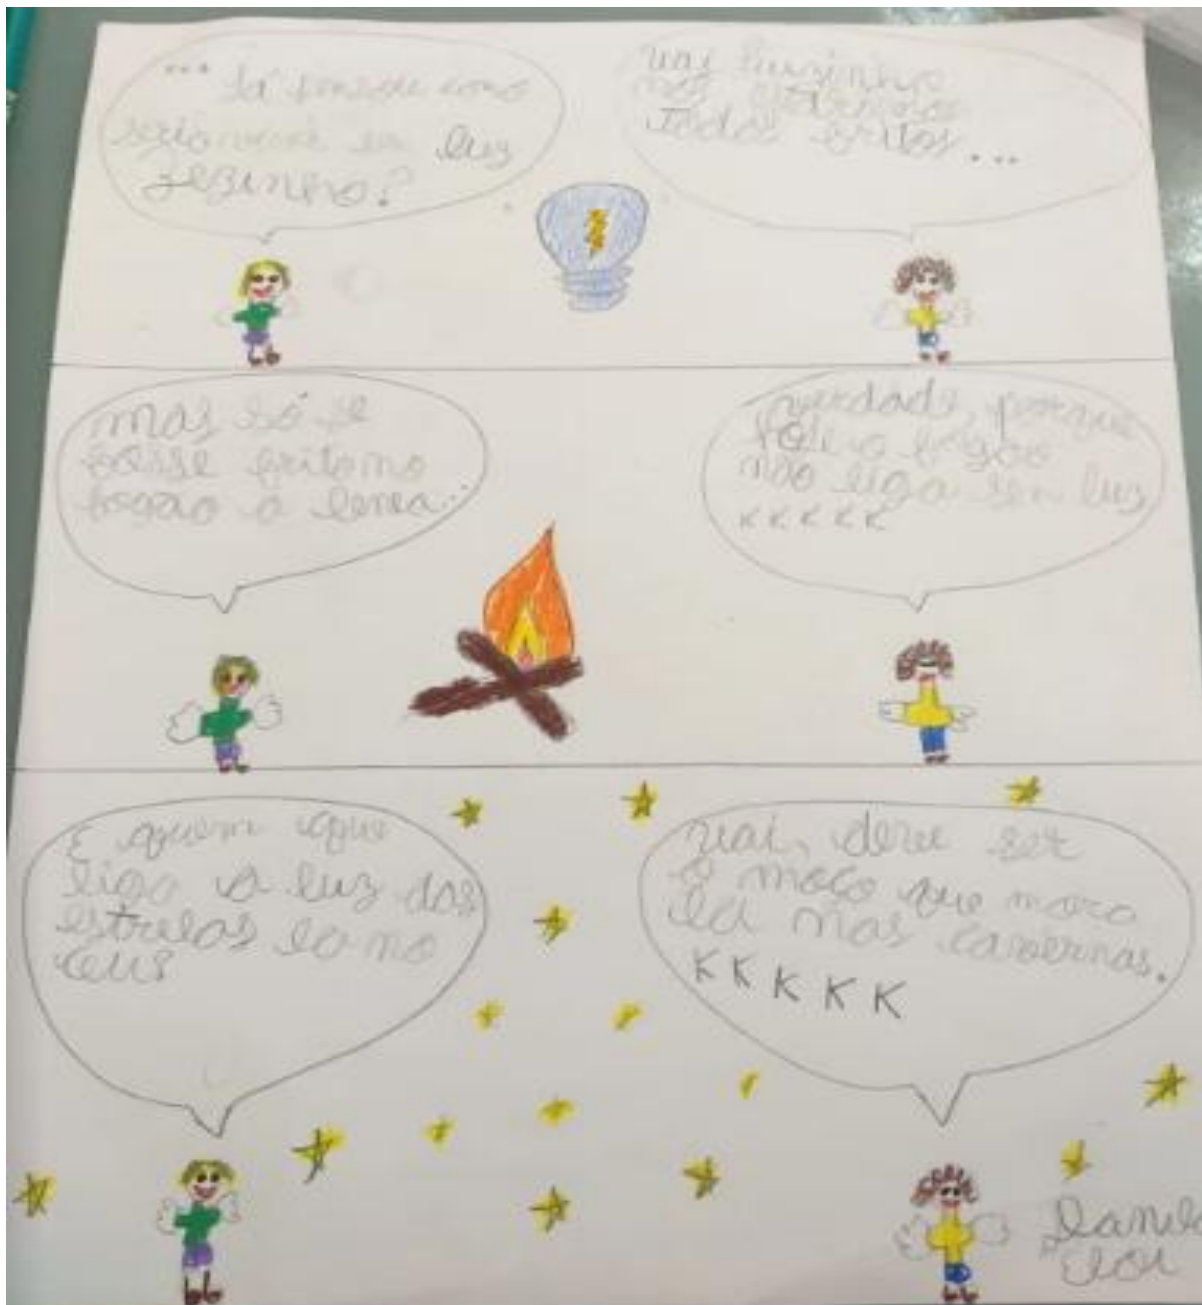 ... Já pensou como
seria viver sem luz
zezinho?
uai luizinho
nós estarmos
todos fritos...
mas só se
fosse frito no
fogão a lenea...
verdade, porque
fogão
não liga sem luz
KKKKK
E quem que
liga a luz das
estrelas la no
ceus
uai, deve ser
o moço que mora
la nas cavernas.
KKKKK